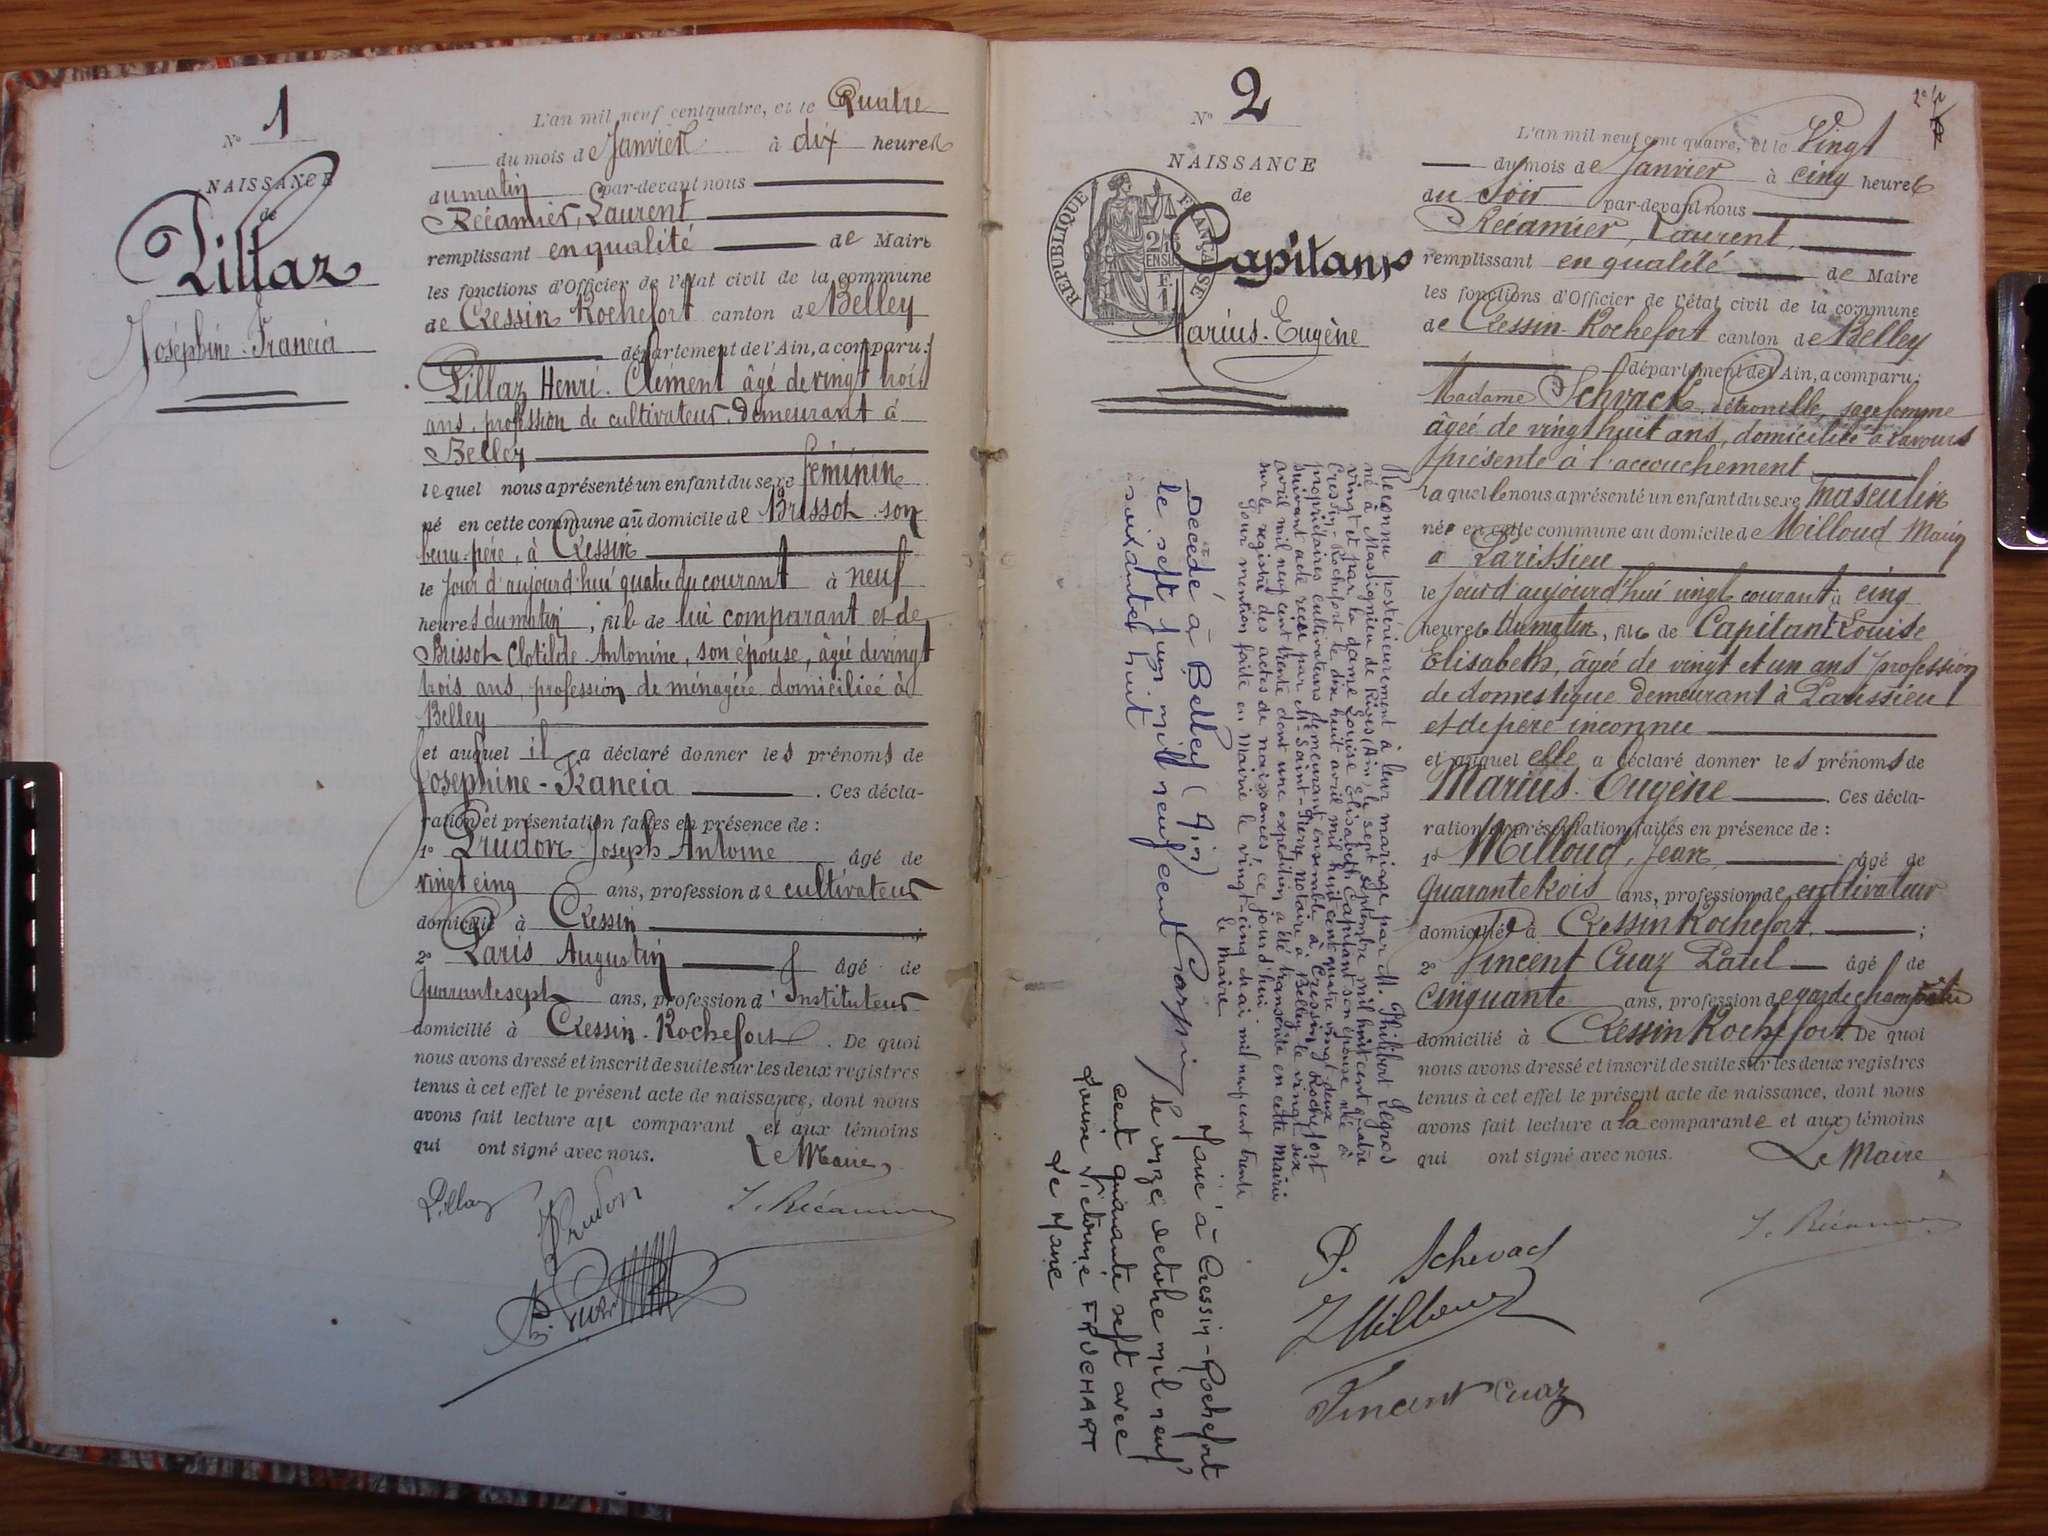 N° 1
NAISSANCE
de
Pillaz
Joséphine-Francia
L'an mil neuf cent quatre, et le Quatre
du mois de Janvier à dix heures
du matin par-devant nous
Récamier, Laurent
remplissant en qualité de Maire
les fonctions d'Officier de l'état civil de la commune
de Cressin Rochefort canton de Belley
département de l'Ain, a comparu:
Pillaz Henri-Clément âgé de vingt trois
ans, profession de cultivateur, demeurant à
Belley
lequel nous a présenté un enfant du sexe féminin
né en cette commune au domicile de Brissot son
beau-père, à Cressin
le jour d'aujourd'hui quatre du courant à neuf
heures du matin, fils de lui comparant et de
Brissot Clotilde Antonine, son épouse, âgée de vingt
trois ans, profession de ménagère domiciliée à
Belley
et auquel il a déclaré donner les prénoms de
Joséphine-Francia. Ces décla-
ration et présentation faites en présence de:
1° Prudon Joseph Antoine âgé de
vingt cinq ans, profession de cultivateur
domicilié à Cressin
2° Paris Augustin âgé de
Quarante sept ans, profession d'Instituteur
domicilié à Cressin-Rochefort. De quoi
nous avons dressé et inscrit de suite sur les deux registres
tenus à cet effet le présent acte de naissance, dont nous
avons fait lecture au comparant et aux témoins
qui ont signé avec nous. Le Maire,
Pillaz Prudon L. Récamier
N° 2
NAISSANCE
de
REPUBLIQUE FRANÇAISE
2/10 EN SUS
Capitant
Marius-Eugène
Reconnu postérieurement à leur mariage par M. Philibert Legros
né à Massignieu de Rives (Ain) le sept septembre mil huit cent quatre
vingt et par la dame Louise Elisabeth Capitant son épouse née à
Cressin-Rochefort le dix huit avril mil huit cent quatre vingt deux
propriétaires cultivateurs demeurant ensemble à Cressin Rochefort
suivant acte reçu par Me Saint-Pierre, Notaire à Belley le vingt six
avril mil neuf cent trente dont une expédition a été transcrite en cette Mairie
sur le registre des actes de naissances, ce jourd'hui
Pour mention faite en Mairie le vingt-cinq mai mil neuf cent trente
le Maire
Décédé à Belley (Ain)
le sept juin mil neuf cent
soixante huit
Marié à Cressin-Rochefort
le onze octobre mil neuf
cent quarante sept avec
Louise Victorine FRUCHART
Le Maire
L'an mil neuf cent quatre, et le Vingt
du mois de Janvier à cinq heures
du Soir par-devant nous
Récamier, Laurent,
remplissant en qualité de Maire
les fonctions d'Officier de l'état civil de la commune
de Cressin-Rochefort canton de Belley
département de l'Ain, a comparu:
Madame Schvack, Pétronille, sage femme
âgée de vingt huit ans, domiciliée à Lavours
présente à l'accouchement
laquelle nous a présenté un enfant du sexe masculin
née en cette commune au domicile de Milloud
à Parissieu
le jour d'aujourd'hui vingt courant à cinq
heures du matin, fils de Capitant Louise
Elisabeth, âgée de vingt et un ans profession
de domestique demeurant à Parissieu
et de père inconnue
et auquel elle a déclaré donner les prénoms de
Marius-Eugène. Ces décla-
ration et présentation faites en présence de:
1° Milloud, Jean, âgé de
Quarante trois ans, profession de cultivateur
domicilié à Cressin Rochefort;
2° Vincent Cuaz Paul âgé de
Cinquante ans, profession de garde champêtre
domicilié à Cressin Rochefort. De quoi
nous avons dressé et inscrit de suite sur les deux registres
tenus à cet effet le présent acte de naissance, dont nous
avons fait lecture à la comparante et aux témoins
qui ont signé avec nous. Le Maire
P. Schevach L. Récamier
J Milloud
Vincent Cuaz